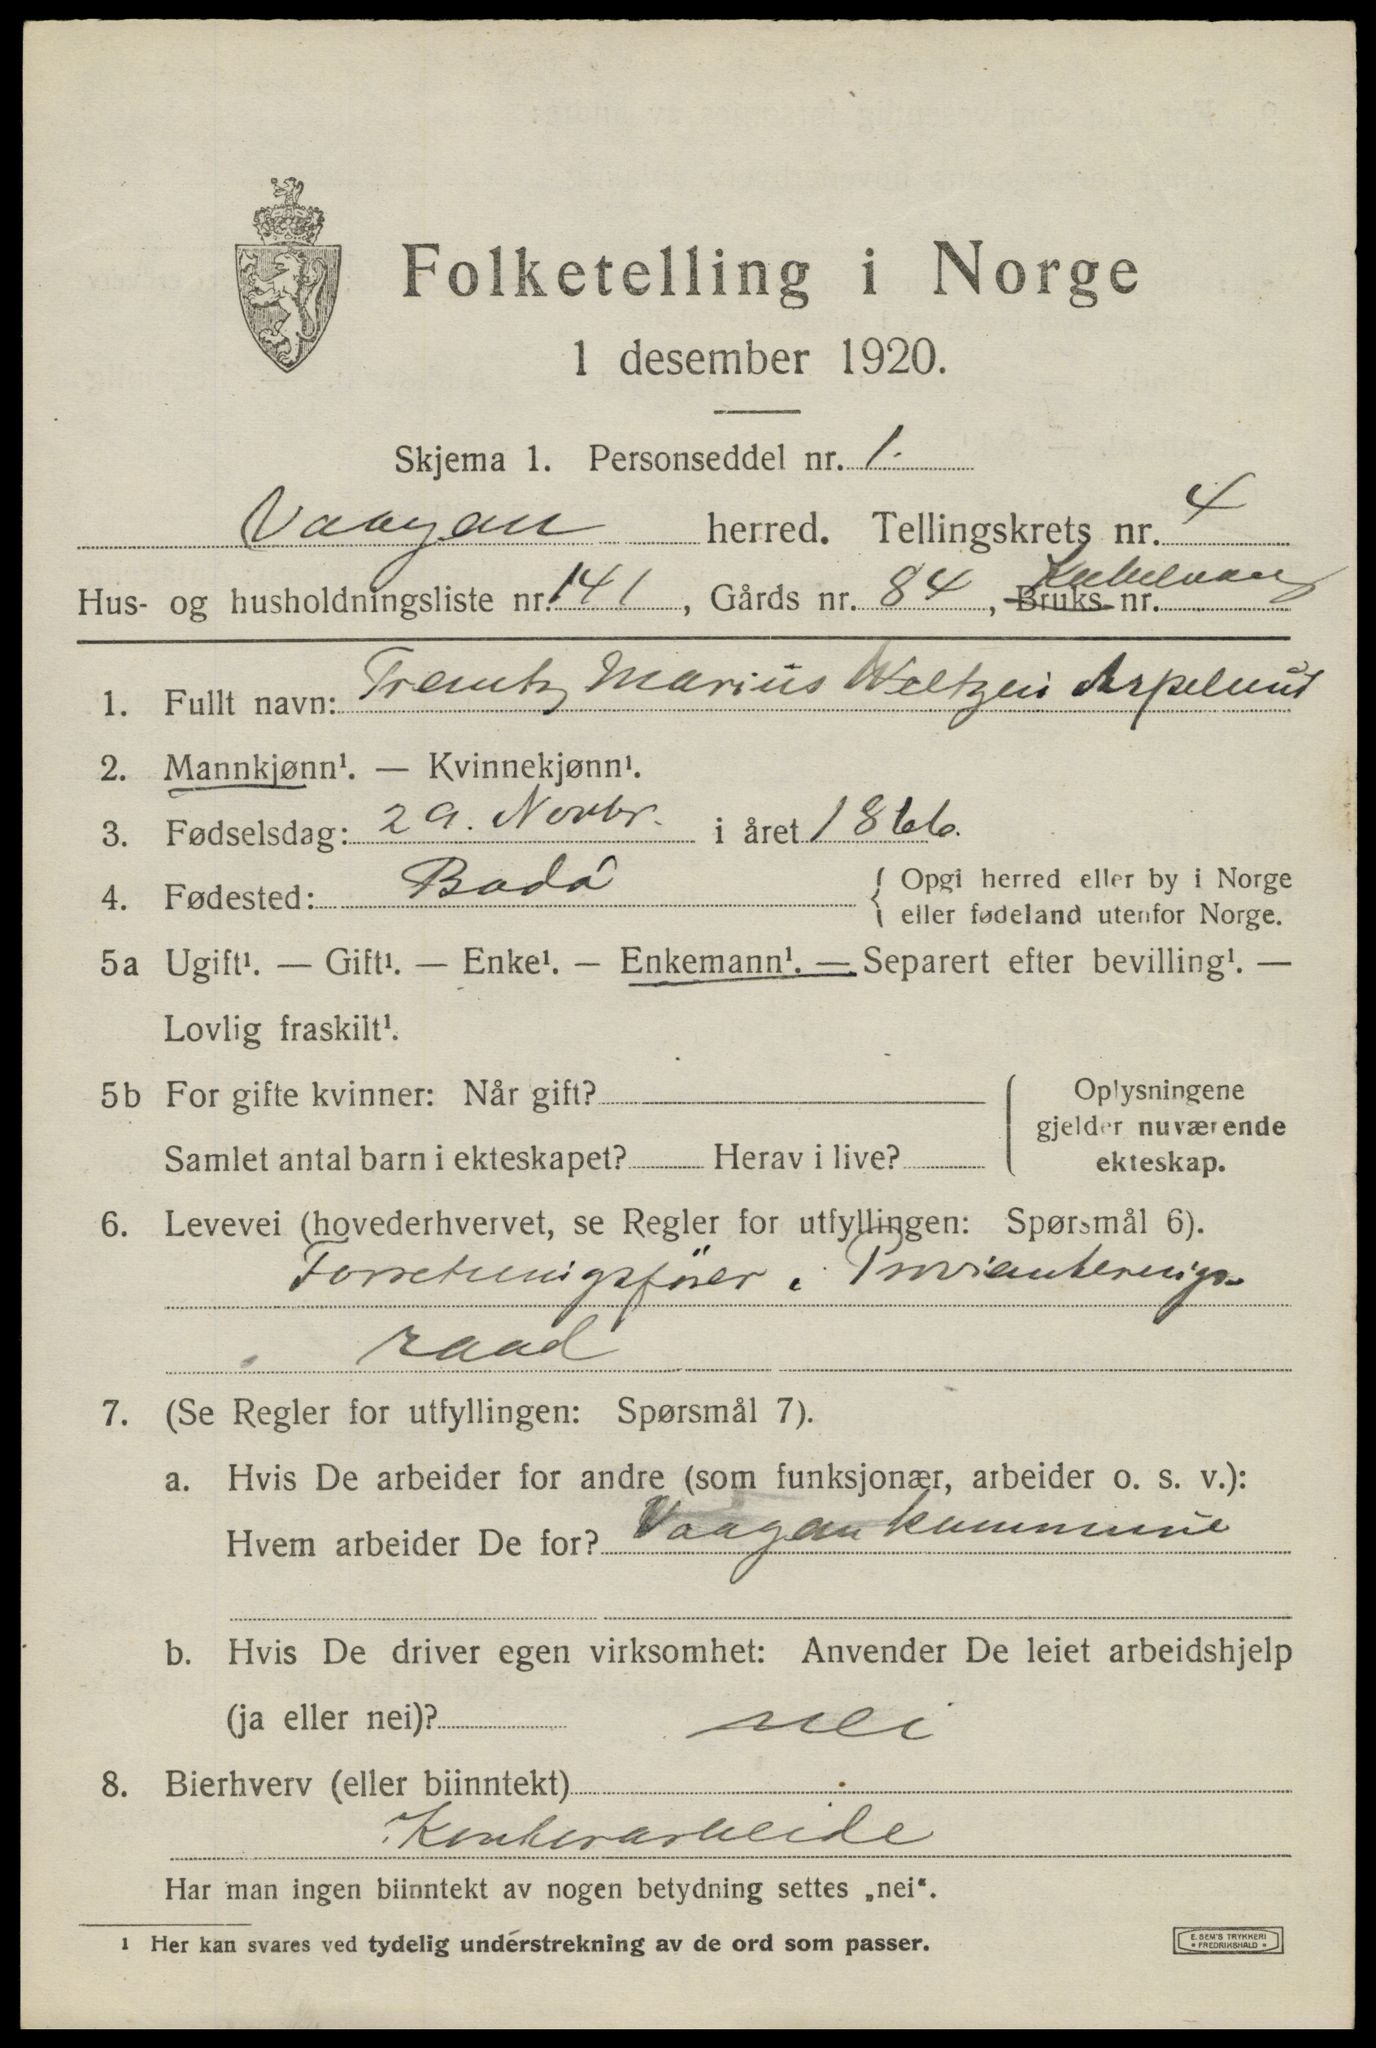 Folketelling i Norge
1 desember 1920.
Skjema 1. Personseddel nr. 1.
Vaagan herred. Tellingskrets nr. 4
Hus- og husholdningsliste nr. 141, Gårds nr. 84, Bruks nr. Kabelvaag
1. Fullt navn: Marius Weltzen Aspelund
2. Mannkjønn¹. — Kvinnekjønn¹.
3. Fødselsdag: 29. Novbr. i året 1866.
4. Fødested: Bodö { Opgi herred eller by i Norge
eller fødeland utenfor Norge.
5a Ugift¹. — Gift¹. — Enke¹. — Enkemann¹. — Separert efter bevilling¹. —
Lovlig fraskilt¹.
5b For gifte kvinner: Når gift?
Samlet antal barn i ekteskapet? Herav i live?
Oplysningene
gjelder nuværende
ekteskap.
6. Levevei (hovederhvervet, se Regler for utfyllingen: Spørsmål 6).
Forretningsfører i Provianterings-
raad
7. (Se Regler for utfyllingen: Spørsmål 7).
a. Hvis De arbeider for andre (som funksjonær, arbeider o. s. v.):
Hvem arbeider De for? Vaagan kommune
b. Hvis De driver egen virksomhet: Anvender De leiet arbeidshjelp
(ja eller nei)? nei
8. Bierhverv (eller biinntekt)
Kontorarbeide
Har man ingen biinntekt av nogen betydning settes „nei“.
¹ Her kan svares ved tydelig understrekning av de ord som passer.
E. SEM'S TRYKKERI
• FREDRIKSHALD •